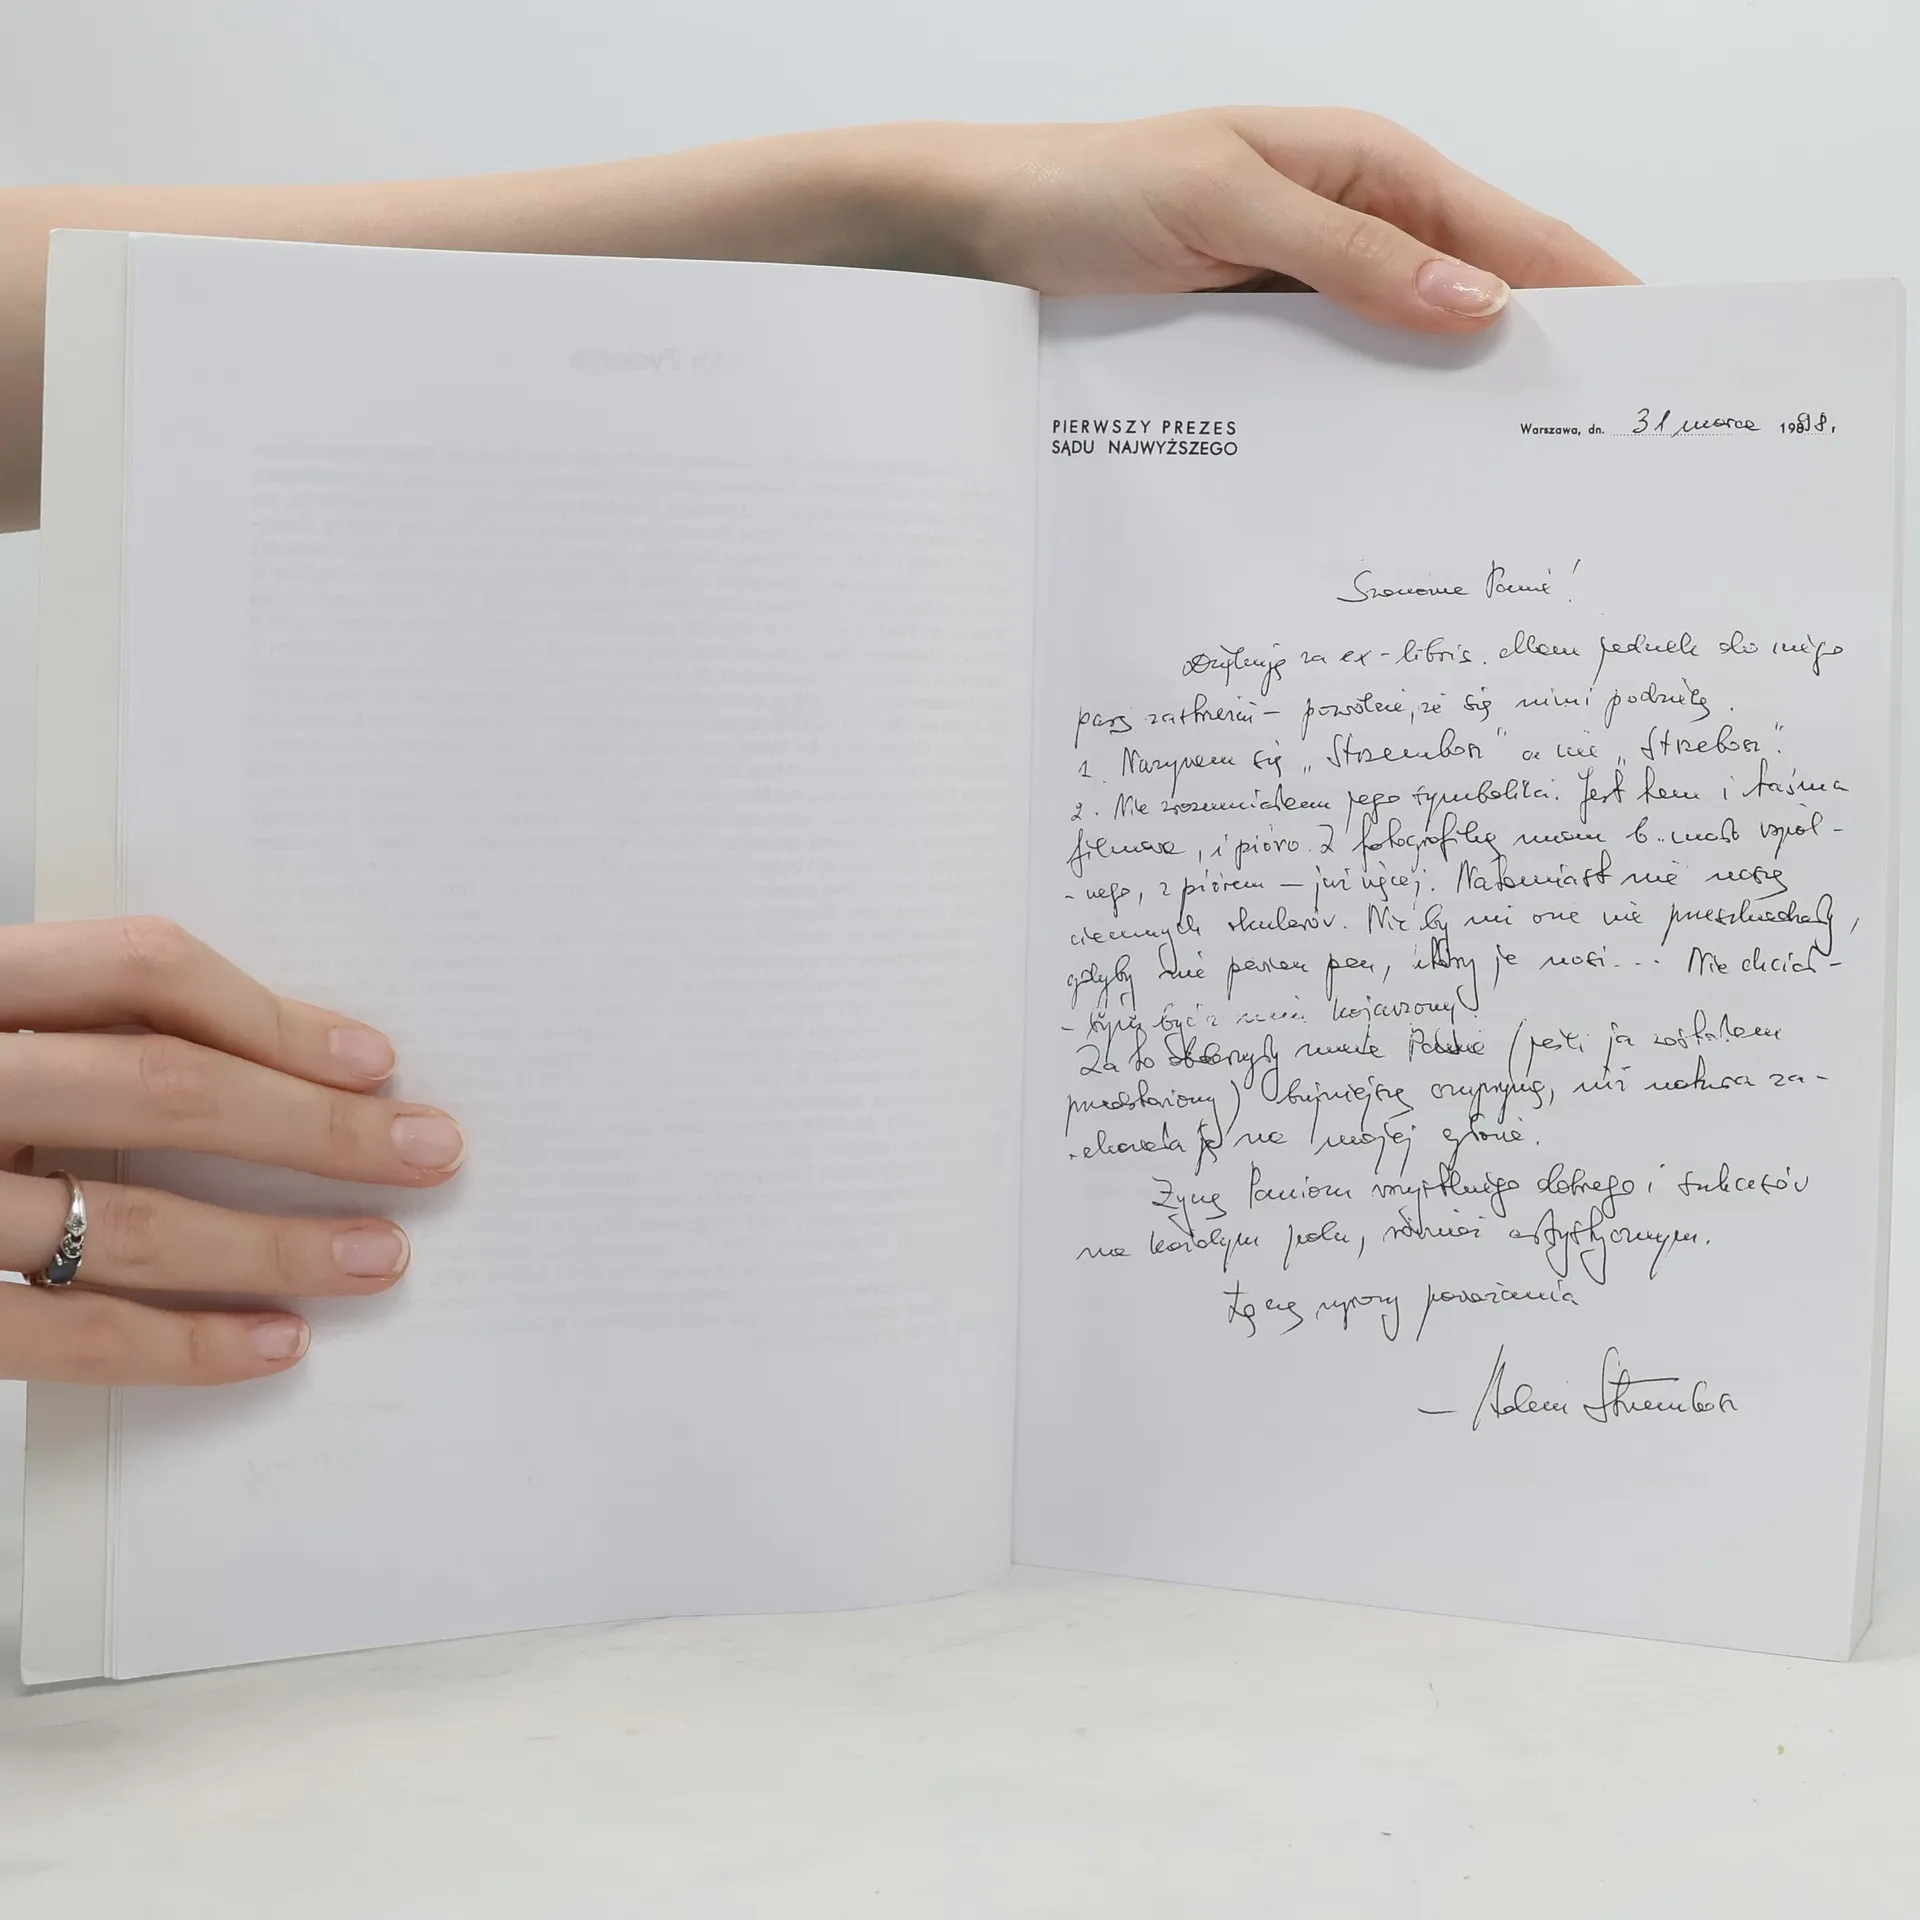 PIERWSZY PREZES
SĄDU NAJWYŻSZEGO
Warszawa, dn. 31 marca 1998 r.
Szanowne Panie!
Dziękuję za ex-libris. Mam jednak do niego
parę zastrzeżeń – pozwólcie, że się nimi podzielę.
1. Nazywam się „Strzembosz" a nie „Strzebosz".
2. Nie zrozumiałem jego symboliki. Jest tam i taśma
filmowa, i pióro. Z fotografiką mam b. mało wspól-
-nego, z piórem – już więcej. Natomiast nie noszę
ciemnych okularów. Nic by mi one nie przeszkadzały,
gdyby nie pewien pan, który je nosi... Nie chciał-
-bym być z nim kojarzony!
Za to obdarzyły mnie Panie (jeśli ja zostałem
przedstawiony) bujniejszą czupryną, niż natura za-
-chowała ją na mojej głowie.
Życzę Paniom wszystkiego dobrego i sukcesów
na każdym polu, również artystycznym.
Łączę wyrazy poważania
– Adam Strzembosz